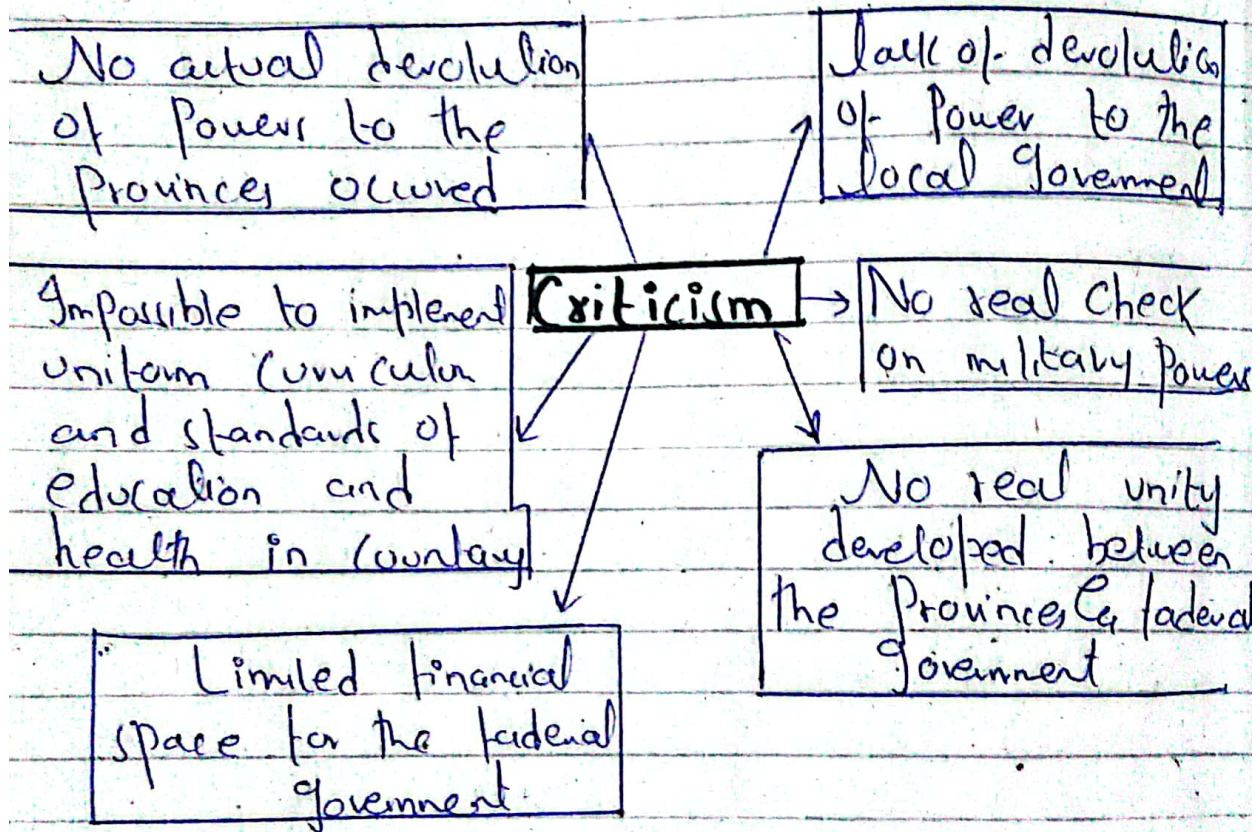 No actual devolution
of Powers to the
Provinces occured
lack of devolution
of Power to the
local government
Criticism
Impossible to implement
uniform Curriculum
and standards of
education and
health in Country
No real Check
on military Powers
No real unity
developed between
the Provinces & faderal
government
Limited financial
space for the faderial
government